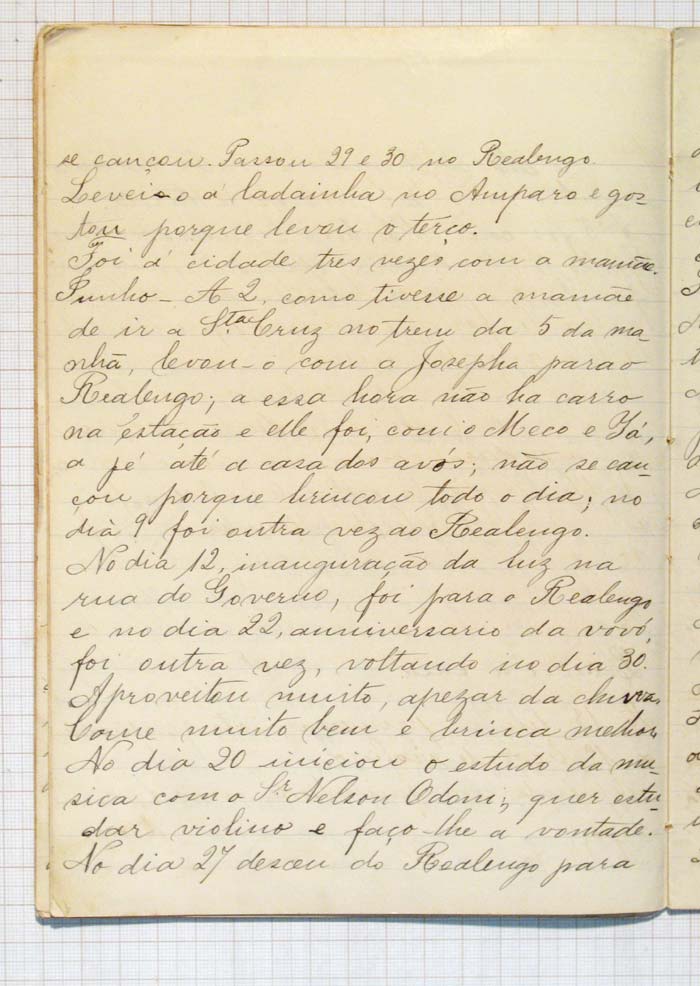 se cançou. Passou 29 e 30 no Realengo.
Levei-o á ladainha no Amparo e gos-
tou porque levou o terço.
Foi á cidade tres vezes com a mamãe.
Junho - A 2, como tivesse a mamãe
de ir a Sta Cruz no trem da 5 da ma-
nhã, levou-o com a Josepha para o
Realengo; a essa hora não ha carro
na estação e elle foi, com o Meco e Yá,
a pé até a casa dos avós; não se can-
çou porque brincou todo o dia; no
dia 9 foi outra vez ao Realengo.
No dia 12, inauguração da luz na
rua do Governo, foi para o Realengo
e no dia 22, anniversario da vovó,
foi outra vez, voltando no dia 30.
Aproveitou muito, apezar da chuva.
Come muito bem e brinca melhor.
No dia 20 iniciou o estudo da mu-
sica com o Sr. Nelson Odoni; quer estu-
dar violino e faço-lhe a vontade.
No dia 27 desceu do Realengo para